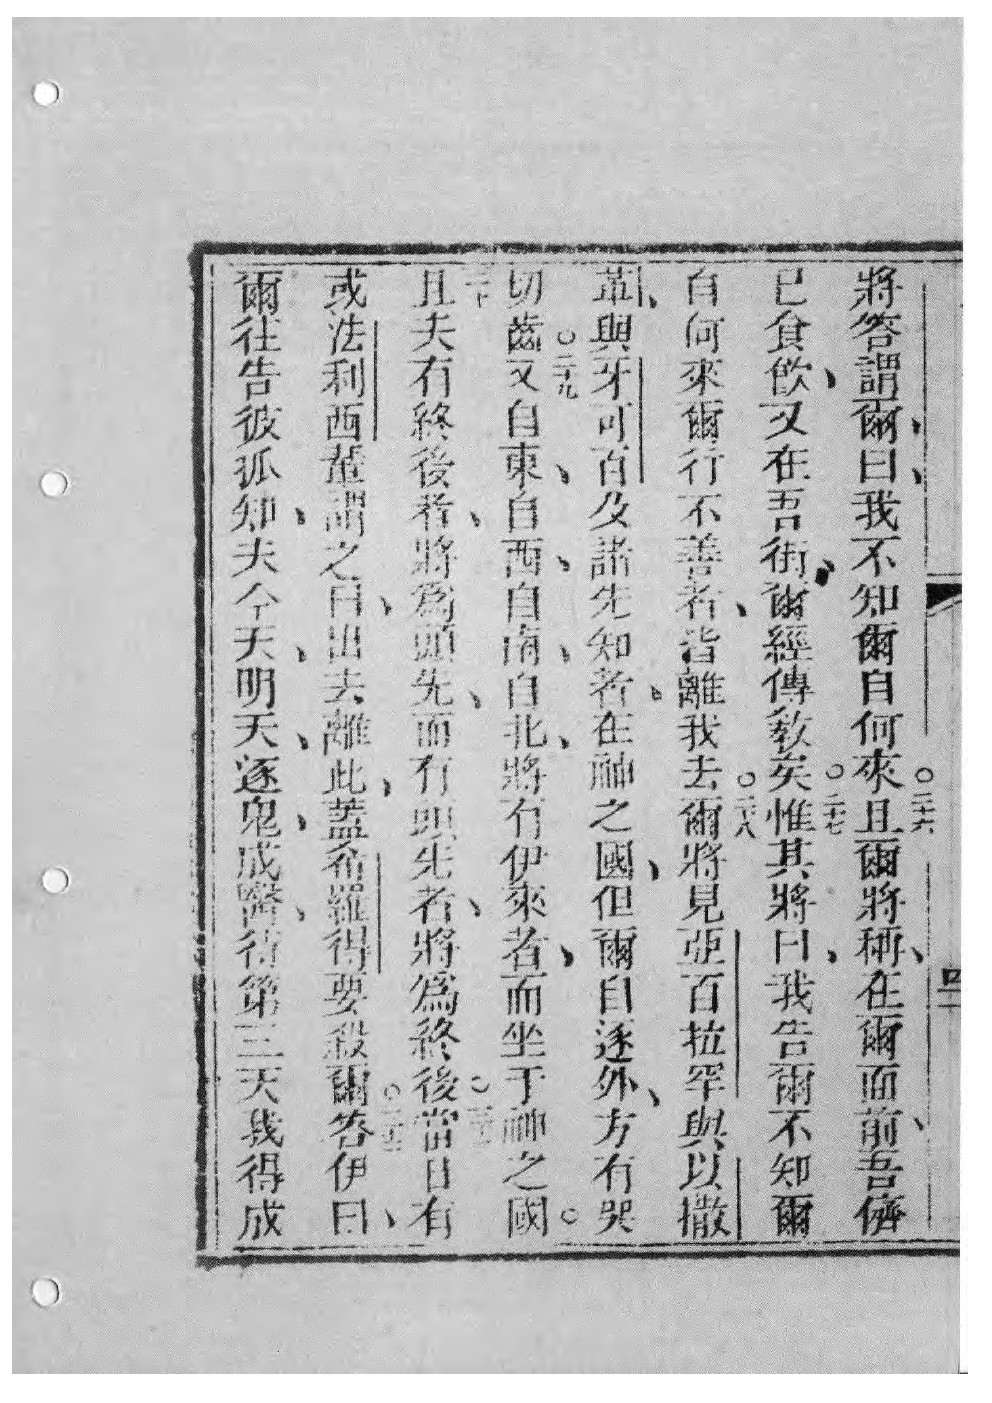 將答謂爾、曰、我不知爾自何來○二十六且爾將稱、在爾面前、吾儕
已食飲、又在吾街、爾經傳教矣○二十七惟其將曰、我告爾不知爾
自何來爾行不善者、皆離我去○二十八爾將見亞百拉罕與以撒
革、與牙可百及諸先知者、在神之國、但爾自逐外、方有哭
切齒○二十九又自東、自西、自南、自北、將有伊來者、而坐于神之國○
三十且夫有終後者、將爲頭先、而有頭先者、將爲終後○三十一當日有
或法利西輩謂之曰、出去離此、蓋希羅得要殺爾○三十二答伊曰、
爾往告彼狐知、夫今天、明天、逐鬼、成醫、待第三天我得成